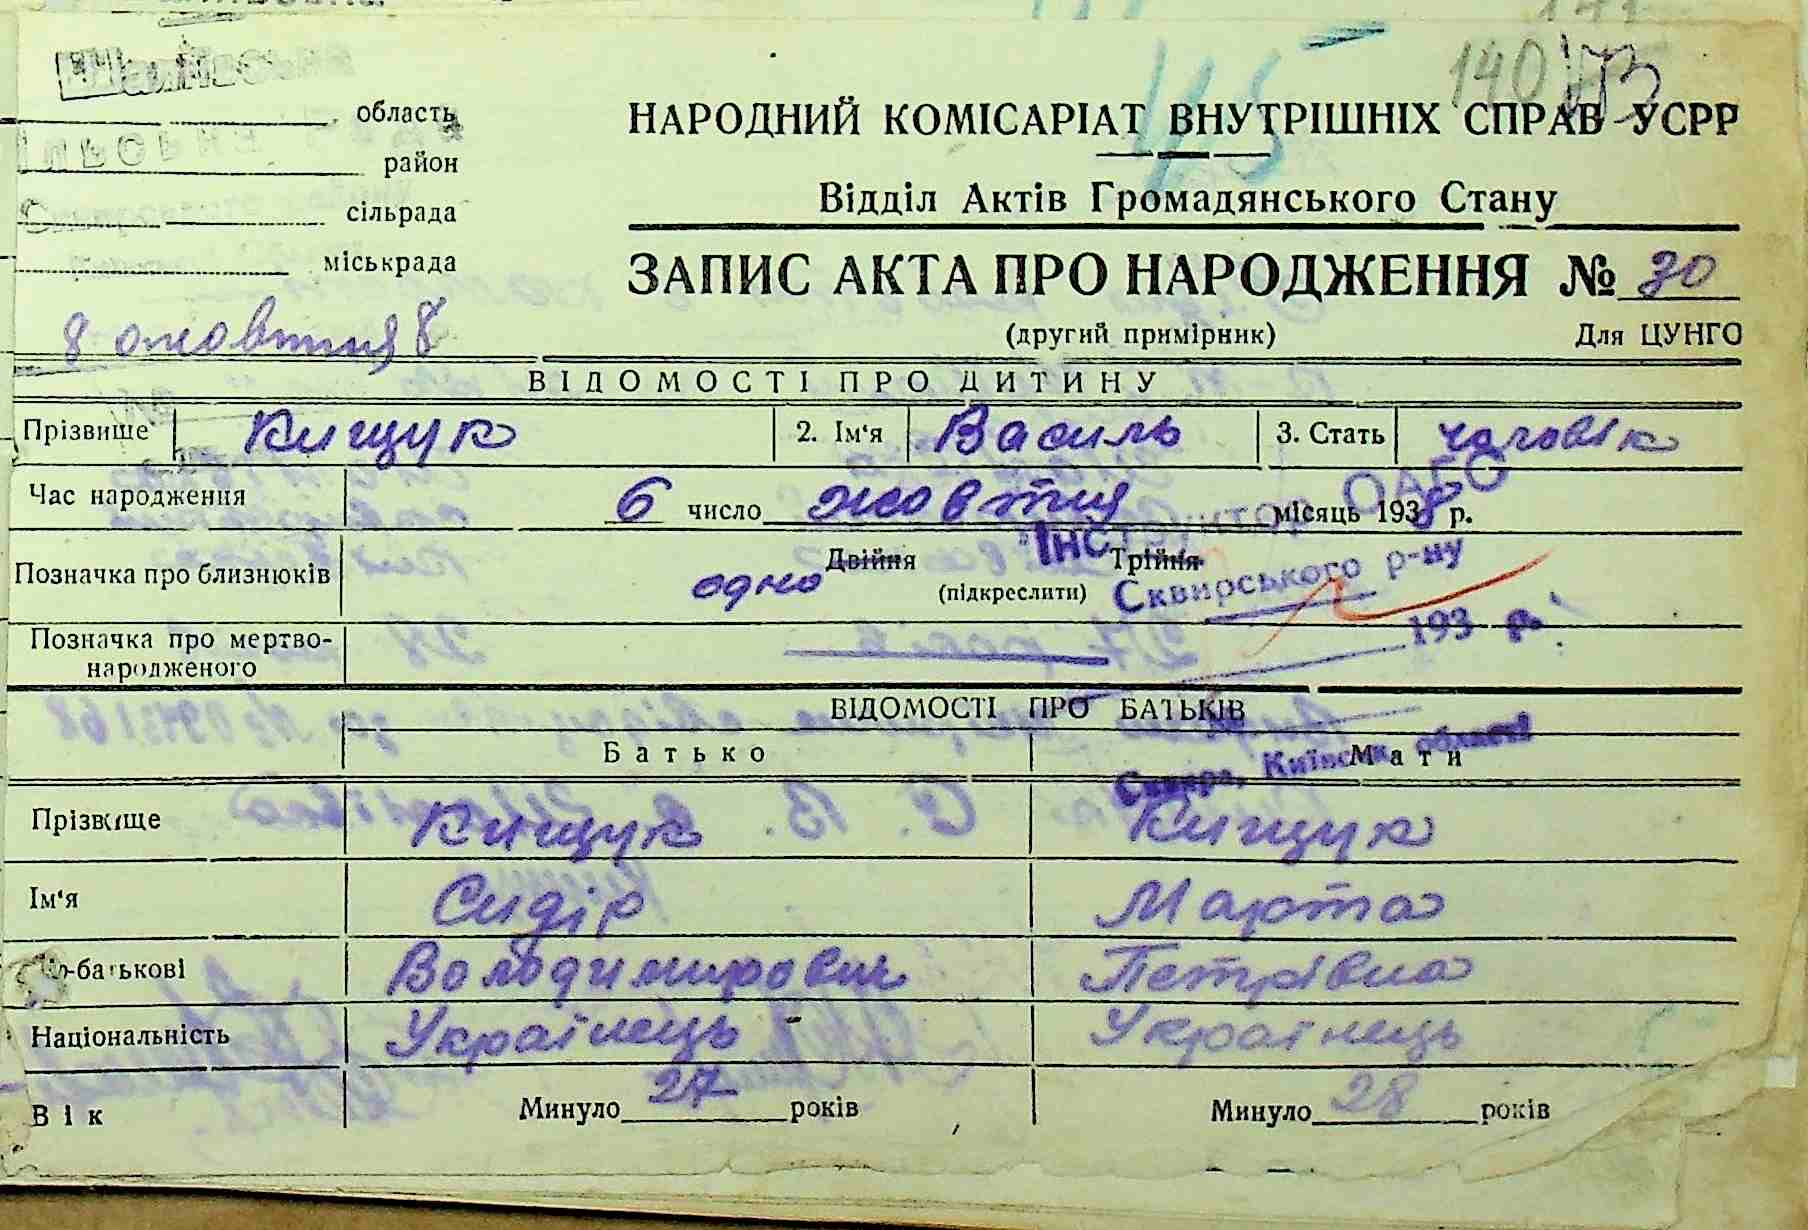 140 173
45
область
район
сільрада
міськрада
НАРОДНИЙ КОМІСАРІАТ ВНУТРІШНІХ СПРАВ УСРР
Відділ Актів Громадянського Стану
ЗАПИС АКТА ПРО НАРОДЖЕННЯ № 30
8 жовтня 8 (другий примірник) Для ЦУНГО
ВІДОМОСТІ ПРО ДИТИНУ
Прізвише Кищук 2. Ім‘я Василь 3. Стать чоловік
Час народження 6 число жовтня місяць 1938 р.
Інспектор ОАГС
Позначка про близнюків одно Двійня Трійня
(підкреслити)
Сквирського р-ну
193 р.
Позначка про мертво-
народженого
ВІДОМОСТІ ПРО БАТЬКІВ
Батько Мати
Сквира, Київська області
Прізвище Кищук Кищук
Ім‘я Сидір Марта
По-батькові Володимирович Петрівна
Національність Українець Українець
Вік Минуло 27 років Минуло 28 років